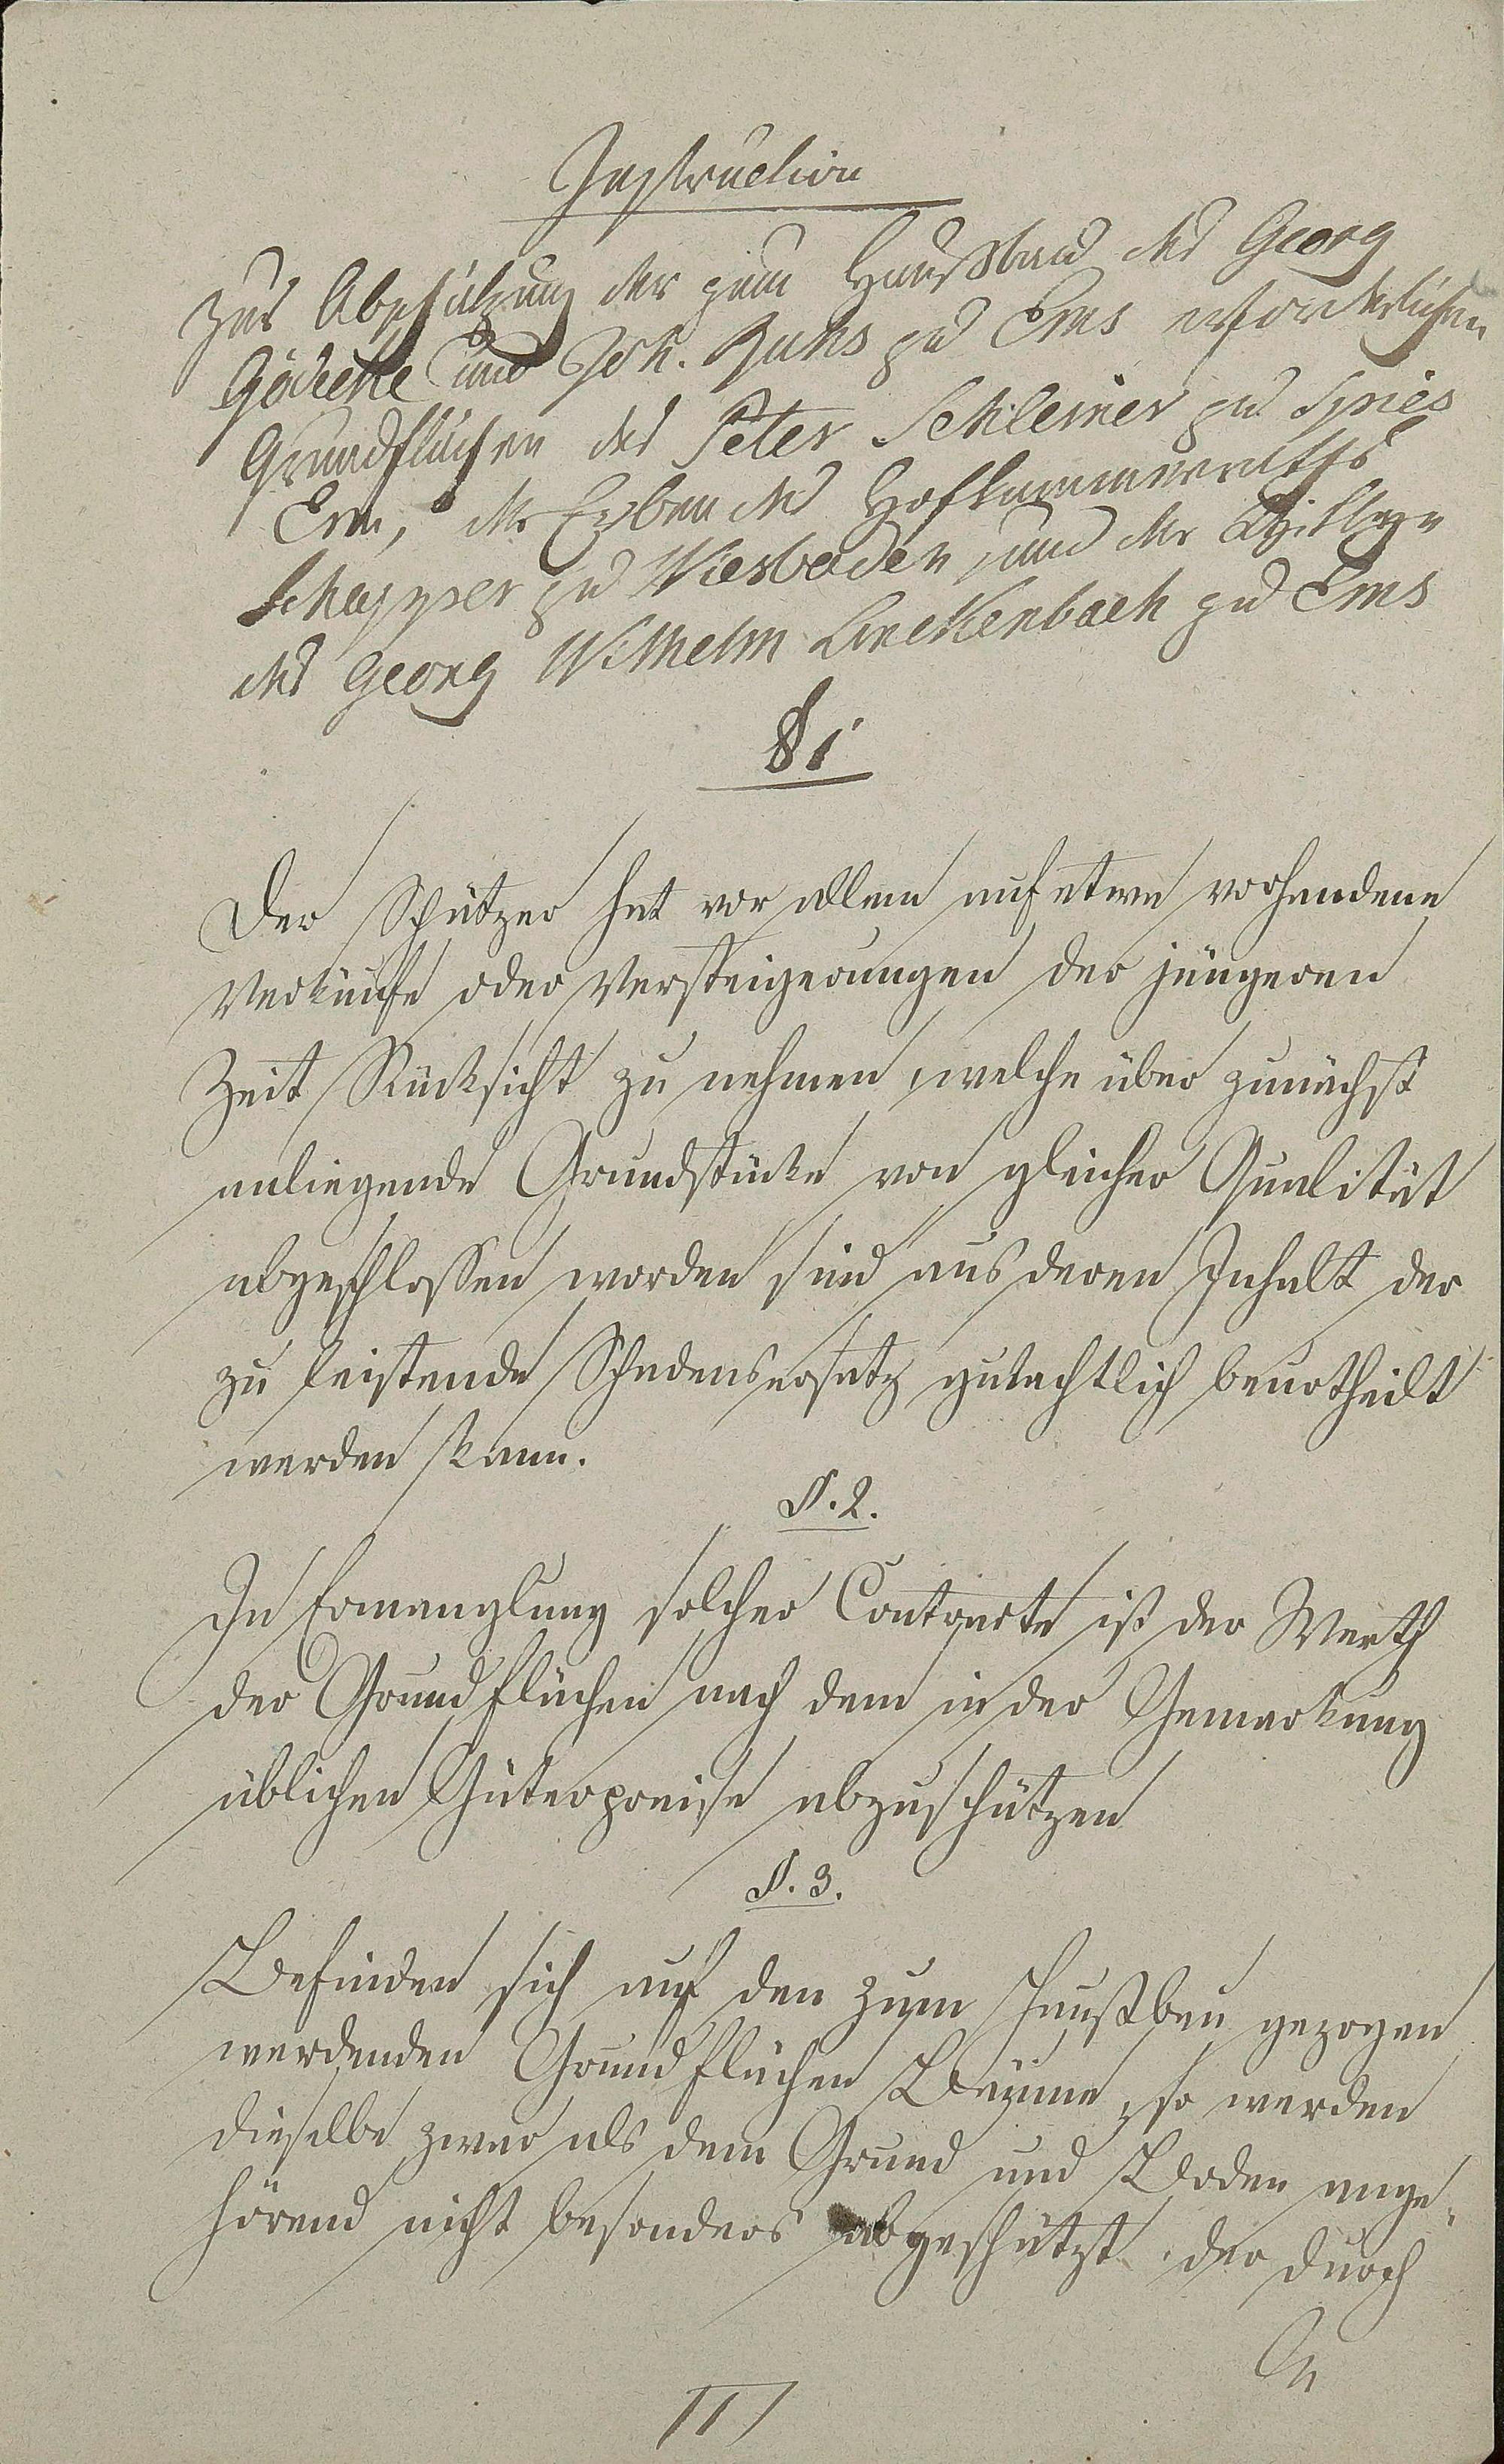 Instruction
zur Abschätzung der zum Haußbau des Georg
Gödecke und Joh. zu Ems erforderlichen
Grundflächen des Peter Schleimer zu Spies
Ems, der Erben des Hofkammerraths
Schapper zu Wiesbaden, und der
des Georg Wilhelm Linckenbach zu Ems
§ 1
Der Schätzer hat vor allem auf etwa vorhandene
Verkäufe oder Versteigerungen der jüngeren
Zeit Rücksicht zu nehmen, welche über zunächst
anliegende Grundstücke von gleicher Qualität
abgeschlossen worden sind aus deren Inhalt der
zu leistende Schadensersatz gutachtlich beurtheilt
werden kann.
§. 2.
In Ermanglung solcher Contracte ist der Werth
der Grundflächen nach dem in der Gemarkung
üblichen Güterpreise abzuschätzen
§. 3.
Befinden sich auf den zum Haußbau gezogen
werdenden Grundflächen Bäume, so werden
dieselbe zwar als dem Grund und Boden ange-
hörend nicht besonders abgeschätzt, der durch